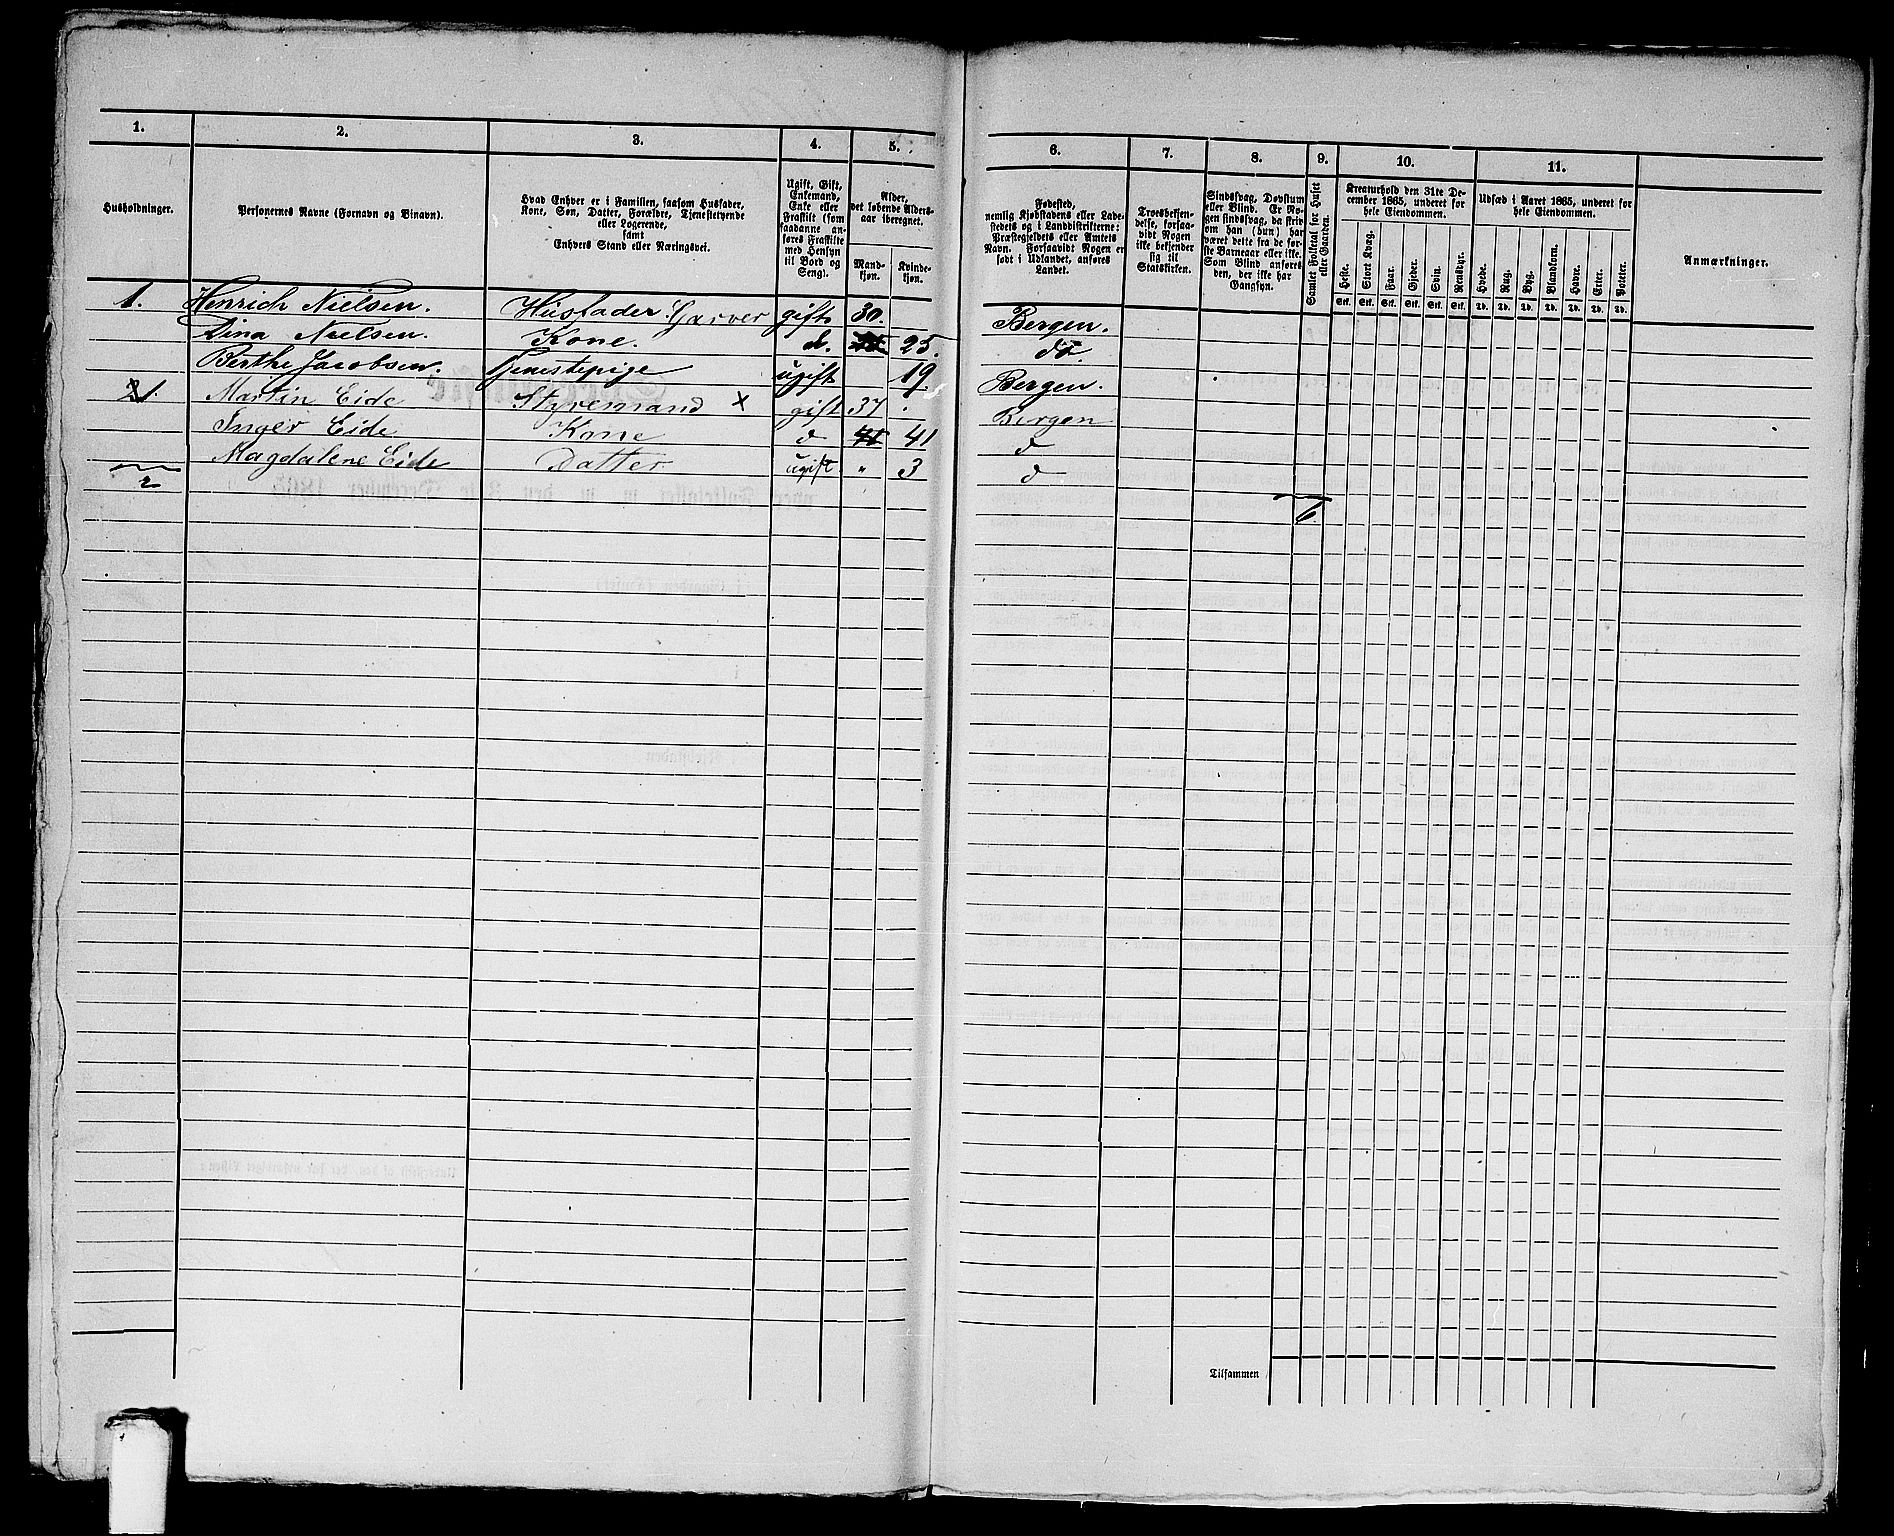 1. 2. 3. 4. 5. 6. 7. 8. 9. 10. 11.
Husholdninger.
Personernes Navne (Fornavn og Binavn).
Hvad Enhver er i Familien, saasom Husfader,
Kone, Søn, Datter, Forældre, Tjenestetyende
eller Logerende,
samt
Enhvers Stand eller Næringsvei.
Ugift, Gift,
Enkemand,
Enke eller
Fraskilt (som
saadanne an-
føres Fraskilte
med Hensyn
til Bord og
Seng).
Alder,
det løbende Alders-
aar iberegnet.
Mand-
kjøn.
Kvinde-
kjøn.
Fødested,
nemlig Kjøbstadens eller Lade-
stedets og i Landdistrikterne:
Præstegjeldets eller Amtets
Navn. Forsaavidt Nogen er
født i Udlandet, anføres
Landet.
Troesbekjen-
delse, forsaa-
vidt Nogen
ikke bekjender
sig til
Statskirken.
Sindssvag, Døvstum
eller Blind. Er No-
gen sindssvag, da skriv
om han (hun) har
været dette fra de før-
ste Barneaar eller ikke.
Som Blind anføres
den, der ikke har
Gangsyn.
Samlet Folketal for Huset
eller Gaarden.
Kreaturhold den 31te De-
cember 1865, underet for
hele Eiendommen.
Heste. Stort Kvæg. Faar. Gjeder. Svin. Rensdyr.
Stk. Stk. Stk. Stk. Stk. Stk.
Udsæd i Aaret 1865, underet for
hele Eiendommen.
Hvede. Rug. Byg. Blandkorn. Havre. Erter. Poteter.
Td. Td. Td. Td. Td. Td. Td.
Anmærkninger.
1. Henrich Nielsen. Husfader. Garver gift 30. Bergen.
Dina Nielsen. Kone. d. 25. do
Berthe Jacobsen. Tjenestepige ugift 19 Bergen.
1. Martin Eide Styremand x gift 37 Bergen
Inger Eide Kone d 41 d
Magdalene Eide Datter ugift " 3 d
2
6
Tilsammen